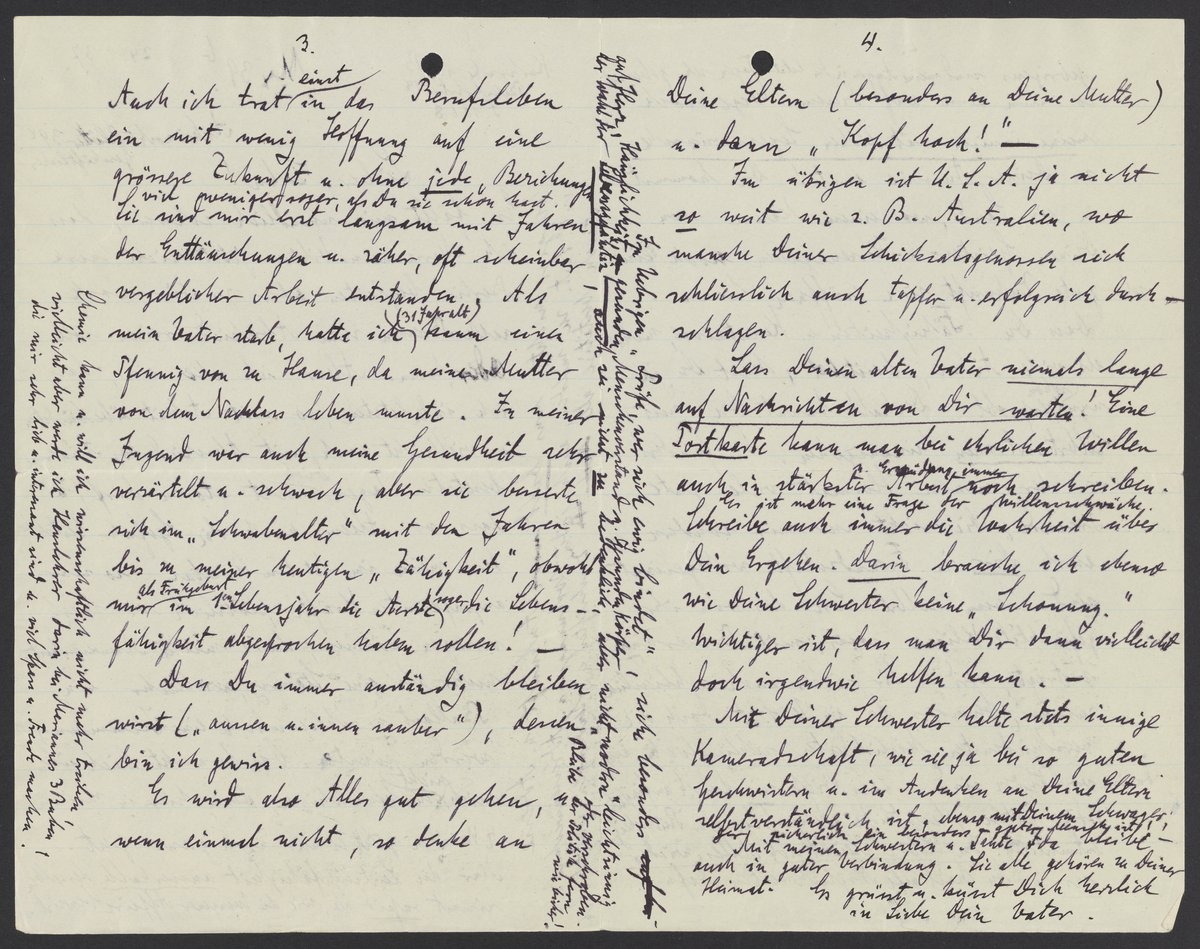 3.
Auch ich trat einst in das Berufsleben
ein mit wenig Hoffnung auf eine
grössere Zukunft u. ohne jede „Beziehung"
viel weniger sogar, als Du sie schon hast.
Sie sind mir erst langsam mit Jahren
der Enttäuschungen u. zäher, oft scheinbar
vergeblicher Arbeit entstanden. Als
mein Vater starb, hatte ich (31 Jahr alt) kaum einen
Pfennig von zu Hause, da meine Mutter
von dem Nachlass leben musste. In meiner
Jugend war auch meine Gesundheit sehr
verzärtelt u. schwach, aber sie besserte
sich im „Schwabenalter" mit den Jahren
bis zu meiner heutigen „Zähigkeit", obwohl
mir als Frühgeburt im 1ten Lebensjahr die Aerzte sogar die Lebens-
fähigkeit abgesprochen haben sollen! —
Dass Du immer anständig bleiben
wirst („aussen u. innen sauber"), dessen
bin ich gewiss.
Es wird also Alles gut gehen, u.
wenn einmal nicht, so denke an
Chemie kann u. will ich wissenschaftlich nicht mehr treiben,
vielleicht aber werde ich Hauslehrer darin bei Mariannes 3 Buben!
die mir sehr lieb u. interessant sind u. viel Spass u. Freude machen!
Im Uebrigen „Prüfe, wer sich ewig bindet", siehe besonders auf
gutes Herz, Häuslichkeit, gesunden Menschenverstand u. gesunden Körper
bei der Lebenspartnerin, auch sei nicht zu bedenklich, aber nicht leichtsinnig
Bleibe
der Politik fern,
wie bisher!
4.
Deine Eltern (besonders an Deine Mutter)
u. dann „Kopf hoch!" —
Im übrigen ist U.S.A. ja nicht
so weit wie z. B. Australien, wo
manche Deiner Schicksalsgenossen sich
schliesslich auch tapfer u. erfolgreich durch-
schlagen.
Lass Deinen alten Vater niemals lange
auf Nachrichten von Dir warten! Eine
Postkarte kann man bei ehrlichem Willen
auch in stärkster Arbeit u. Ermüdung immer noch schreiben.
Es ist mehr eine Frage der Willensschwäche.
Schreibe auch immer die Wahrheit über
Dein Ergehen. Darin brauche ich ebenso
wie Deine Schwester keine „Schonung."
Wichtiger ist, dass man Dir dann vielleicht
doch irgendwie helfen kann. —
Mit Deiner Schwester halte stets innige
Kameradschaft, wie sie ja bei so guten
Geschwistern u. im Andenken an Deine Eltern
selbstverständlich ist, ebenso mit Deinem Schwager,
der sicherlich ein besonders guter Mensch ist!
Mit meinen Schwestern u. Tante Ada bleibe
auch in guter Verbindung. Sie alle gehören zu Deiner
Heimat. Es grüsst u. küsst Dich herzlich
in Liebe Dein Vater.